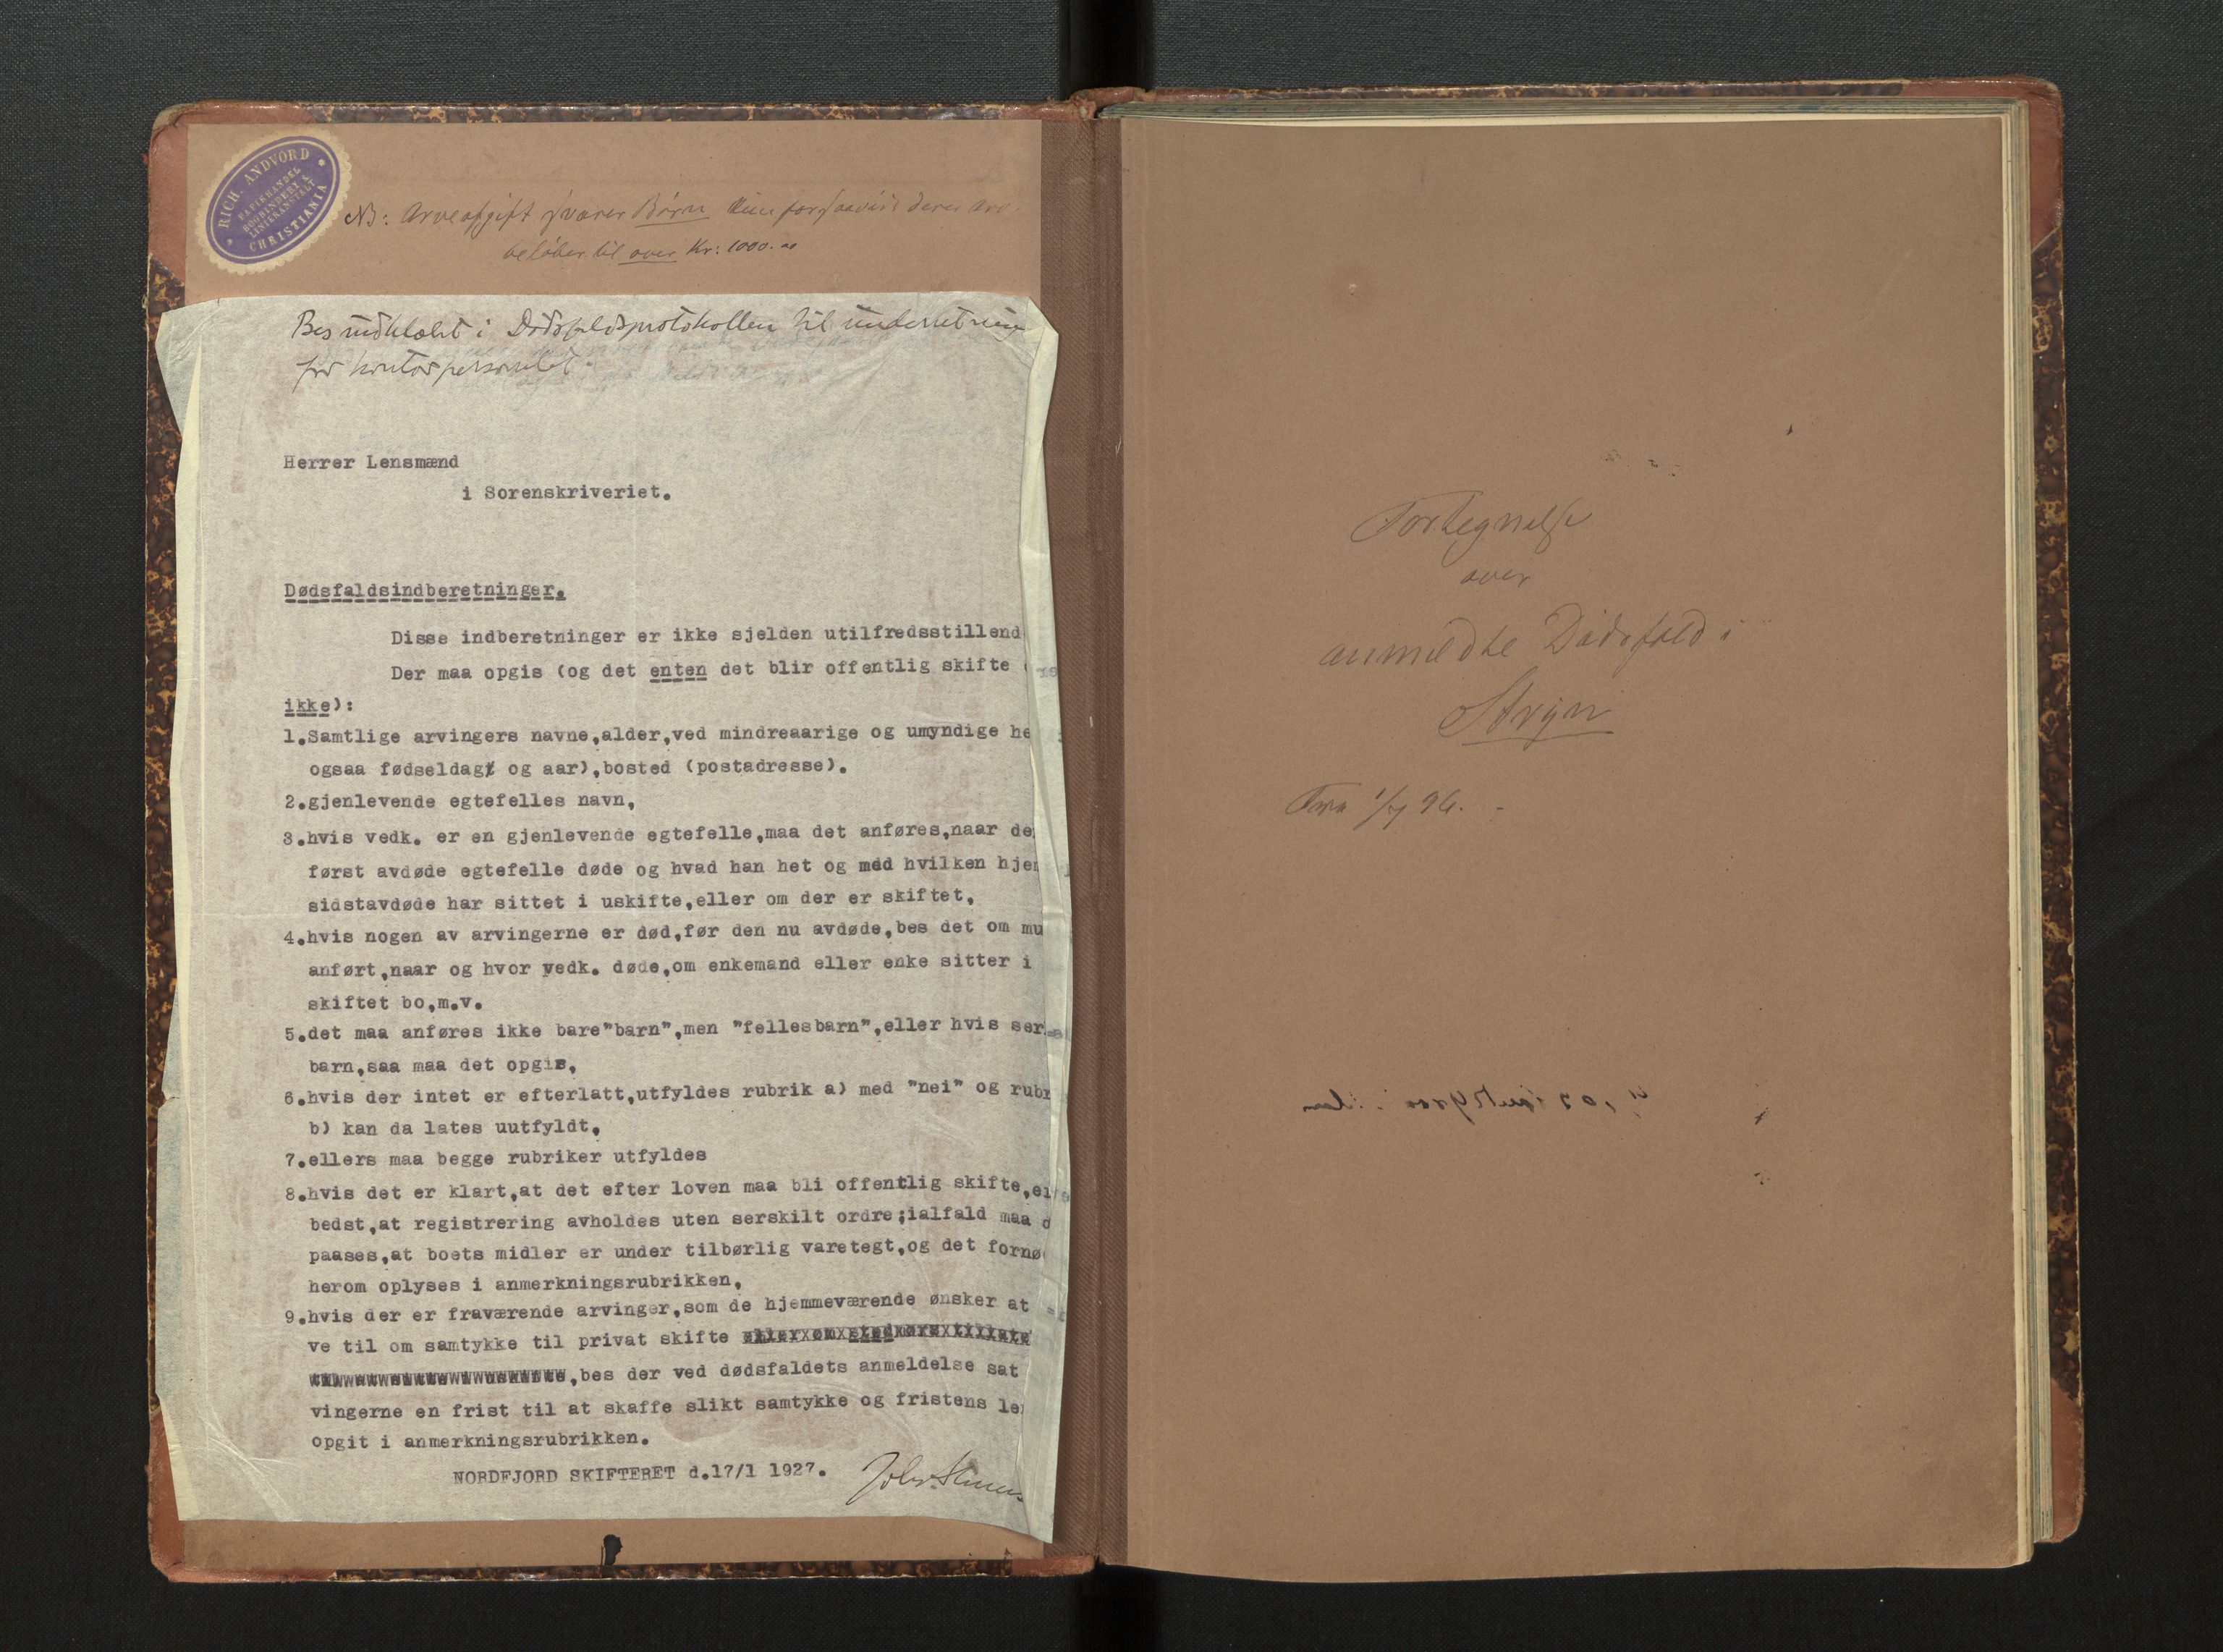 RICH. ANDVORD
PAPIRHANDEL
BOGBINDERI &
LINIERANSTALT
CHRISTIANIA
NB: Arveafgift svarer Børn kun forsaavidt deres Arv
beløber til over Kr: 1000.
Bes indklæbt i Dødsfaldsprotokollen til underretning
for kontorpersonalet.
Herrer Lensmænd
i Sorenskriveriet.
Dødsfaldsindberetninger.
Disse indberetninger er ikke sjelden utilfredsstillend
Der maa opgis (og det enten det blir offentlig skifte
ikke):
1.Samtlige arvingers navne,alder,ved mindreaarige og umyndige he
ogsaa fødseldag og aar),bosted (postadresse).
2.gjenlevende egtefelles navn,
3.hvis vedk. er en gjenlevende egtefelle,maa det anføres,naar de
først avdøde egtefelle døde og hvad han het og med hvilken hjem
sidstavdøde har sittet i uskifte,eller om der er skiftet,
4.hvis nogen av arvingerne er død,før den nu avdøde,bes det om mu
anført,naar og hvor vedk. døde,om enkemand eller enke sitter i
skiftet bo,m.v.
5.det maa anføres ikke bare"barn",men "fellesbarn",eller hvis ser
barn,saa maa det opgis,
6.hvis der intet er efterlatt,utfyldes rubrik a) med "nei" og rubr
b) kan da lates uutfyldt,
7.ellers maa begge rubriker utfyldes
8.hvis det er klart,at det efter loven maa bli offentlig skifte,er
bedst,at registrering avholdes uten serskilt ordre;ialfald maa d
paases,at boets midler er under tilbørlig varetegt,og det fornø
herom oplyses i anmerkningsrubrikken,
9.hvis der er fraværende arvinger,som de hjemmeværende ønsker at
ve til om samtykke til privat skifte
,bes der ved dødsfaldets anmeldelse sat
vingerne en frist til at skaffe slikt samtykke og fristens le
opgit i anmerkningsrubrikken.
NORDFJORD SKIFTERET d.17/1 1927.
Fortegnelse
over
anmeldte Dødsfald i
Stryn
Fra 1/7 96.